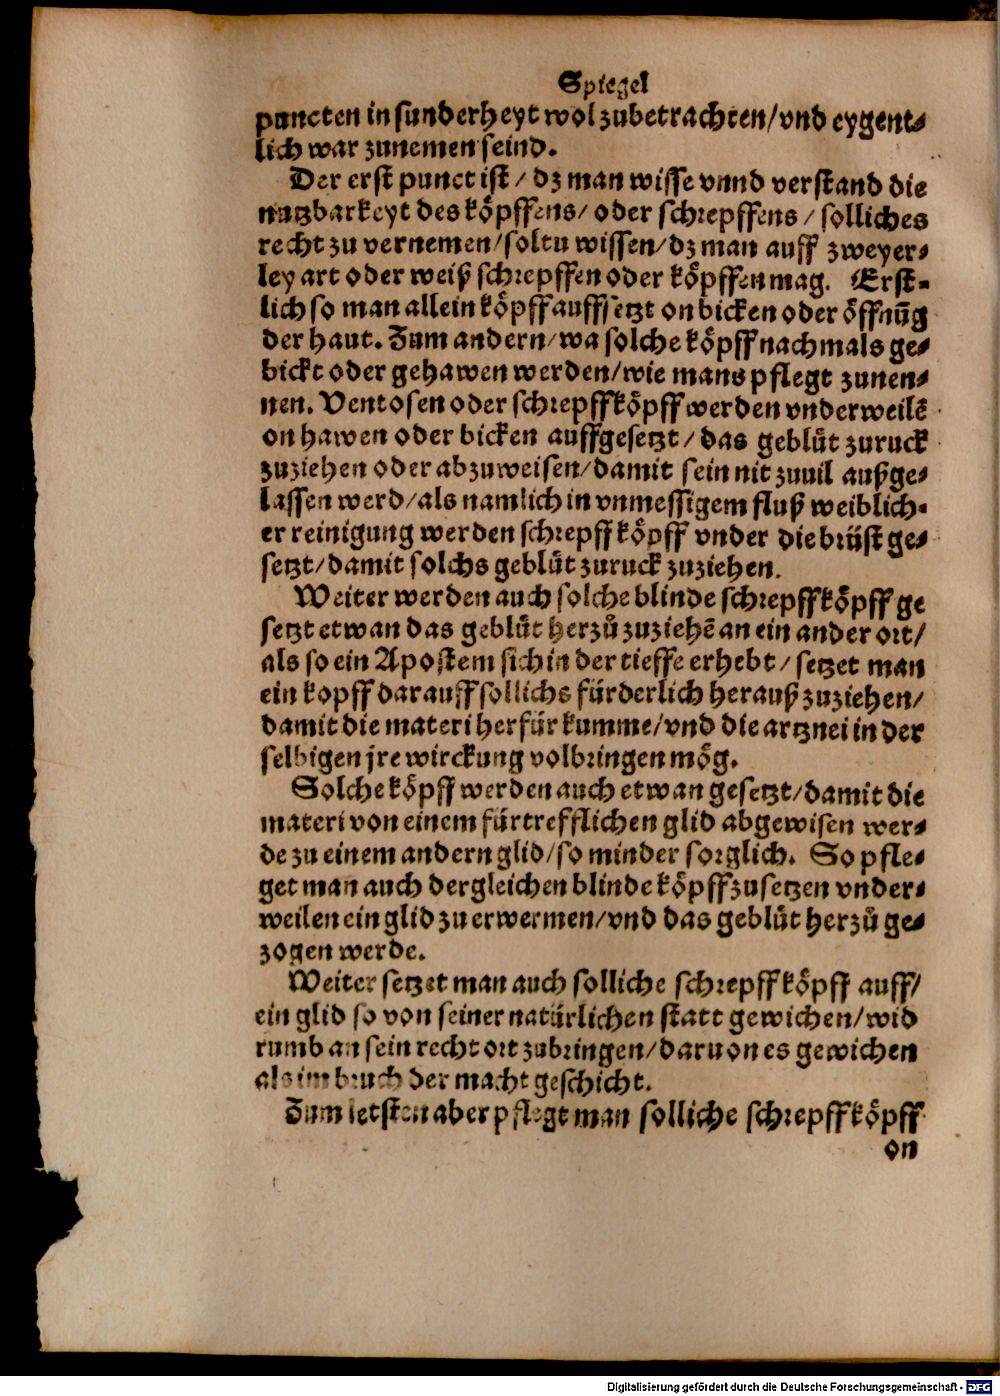 Spiegel
puncten in sunderheyt wol zubetrachten/vnd eygent⸗
lich war zunemen seind.
Der erst punct ist/ dz man wisse vnnd verstand die
nutzbarkeyt des köpffens/ oder schrepffens/ solliches
recht zu vernemen/soltu wissen/dz man auff zweyer⸗
ley art oder weiß schrepffen oder köpffen mag. Erst⸗
lich so man allein köpff auffsetzt on bicken oder öffnūg
der haut. Zum andern/wa solche köpff nachmals ge⸗
bickt oder gehawen werden/wie mans pflegt zunen⸗
nen. Ventosen oder schrepffköpff werden vnderweilē
on hawen oder bicken auffgesetzt/ das geblüt zuruck
zuziehen oder abzuweisen/damit sein nit zuuil außge⸗
lassen werd/als namlich in vnmessigem fluß weiblich⸗
er reinigung werden schrepffköpff vnder die brüst ge⸗
setzt/damit solchs geblüt zuruck zuziehen.
Weiter werden auch solche blinde schrepffköpff ge
setzt etwan das geblüt herzů zuziehē an ein ander ort/
als so ein Apostem sich in der tieffe erhebt/ setzet man
ein kopff darauff sollichs fürderlich herauß zuziehen/
damit die materi herfür kumme/vnd die artznei in der
selbigen jre wirckung volbringen mög.
Solche köpff werden auch etwan gesetzt/damit die
materi von einem fürtrefflichen glid abgewisen wer⸗
de zu einem andern glid/so minder sorglich. So pfle⸗
get man auch dergleichen blinde köpff zusetzen vnder⸗
weilen ein glid zu erwermen/vnd das geblüt herzů ge⸗
zogen werde.
Weiter setzet man auch solliche schrepffköpff auff/
ein glid so von seiner natürlichen statt gewichen/wid
rumb an sein recht ort zubringen/daruon es gewichen
als im bruch der macht geschicht.
Zum letsten aber pflegt man solliche schrepffköpff
on
Digitalisierung gefördert durch die Deutsche Forschungsgemeinschaft - DFG